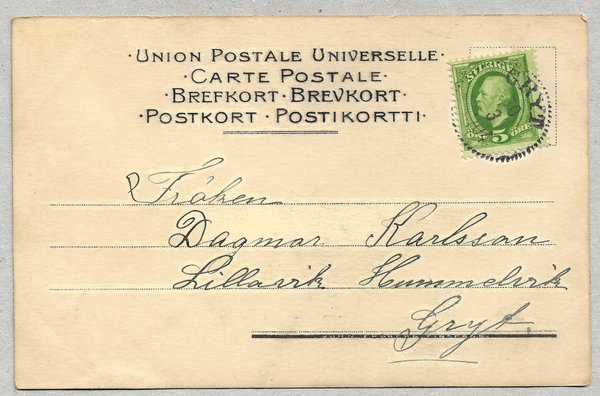 · UNION POSTALE UNIVERSELLE ·
· CARTE POSTALE ·
· BREFKORT · BREVKORT ·
· POSTKORT · POSTIKORTTI ·
SVERIGE
GRYT
5
ÖRE
Fröken
Dagmar Karlsson
Lillavik Hummelvik
Gryt.